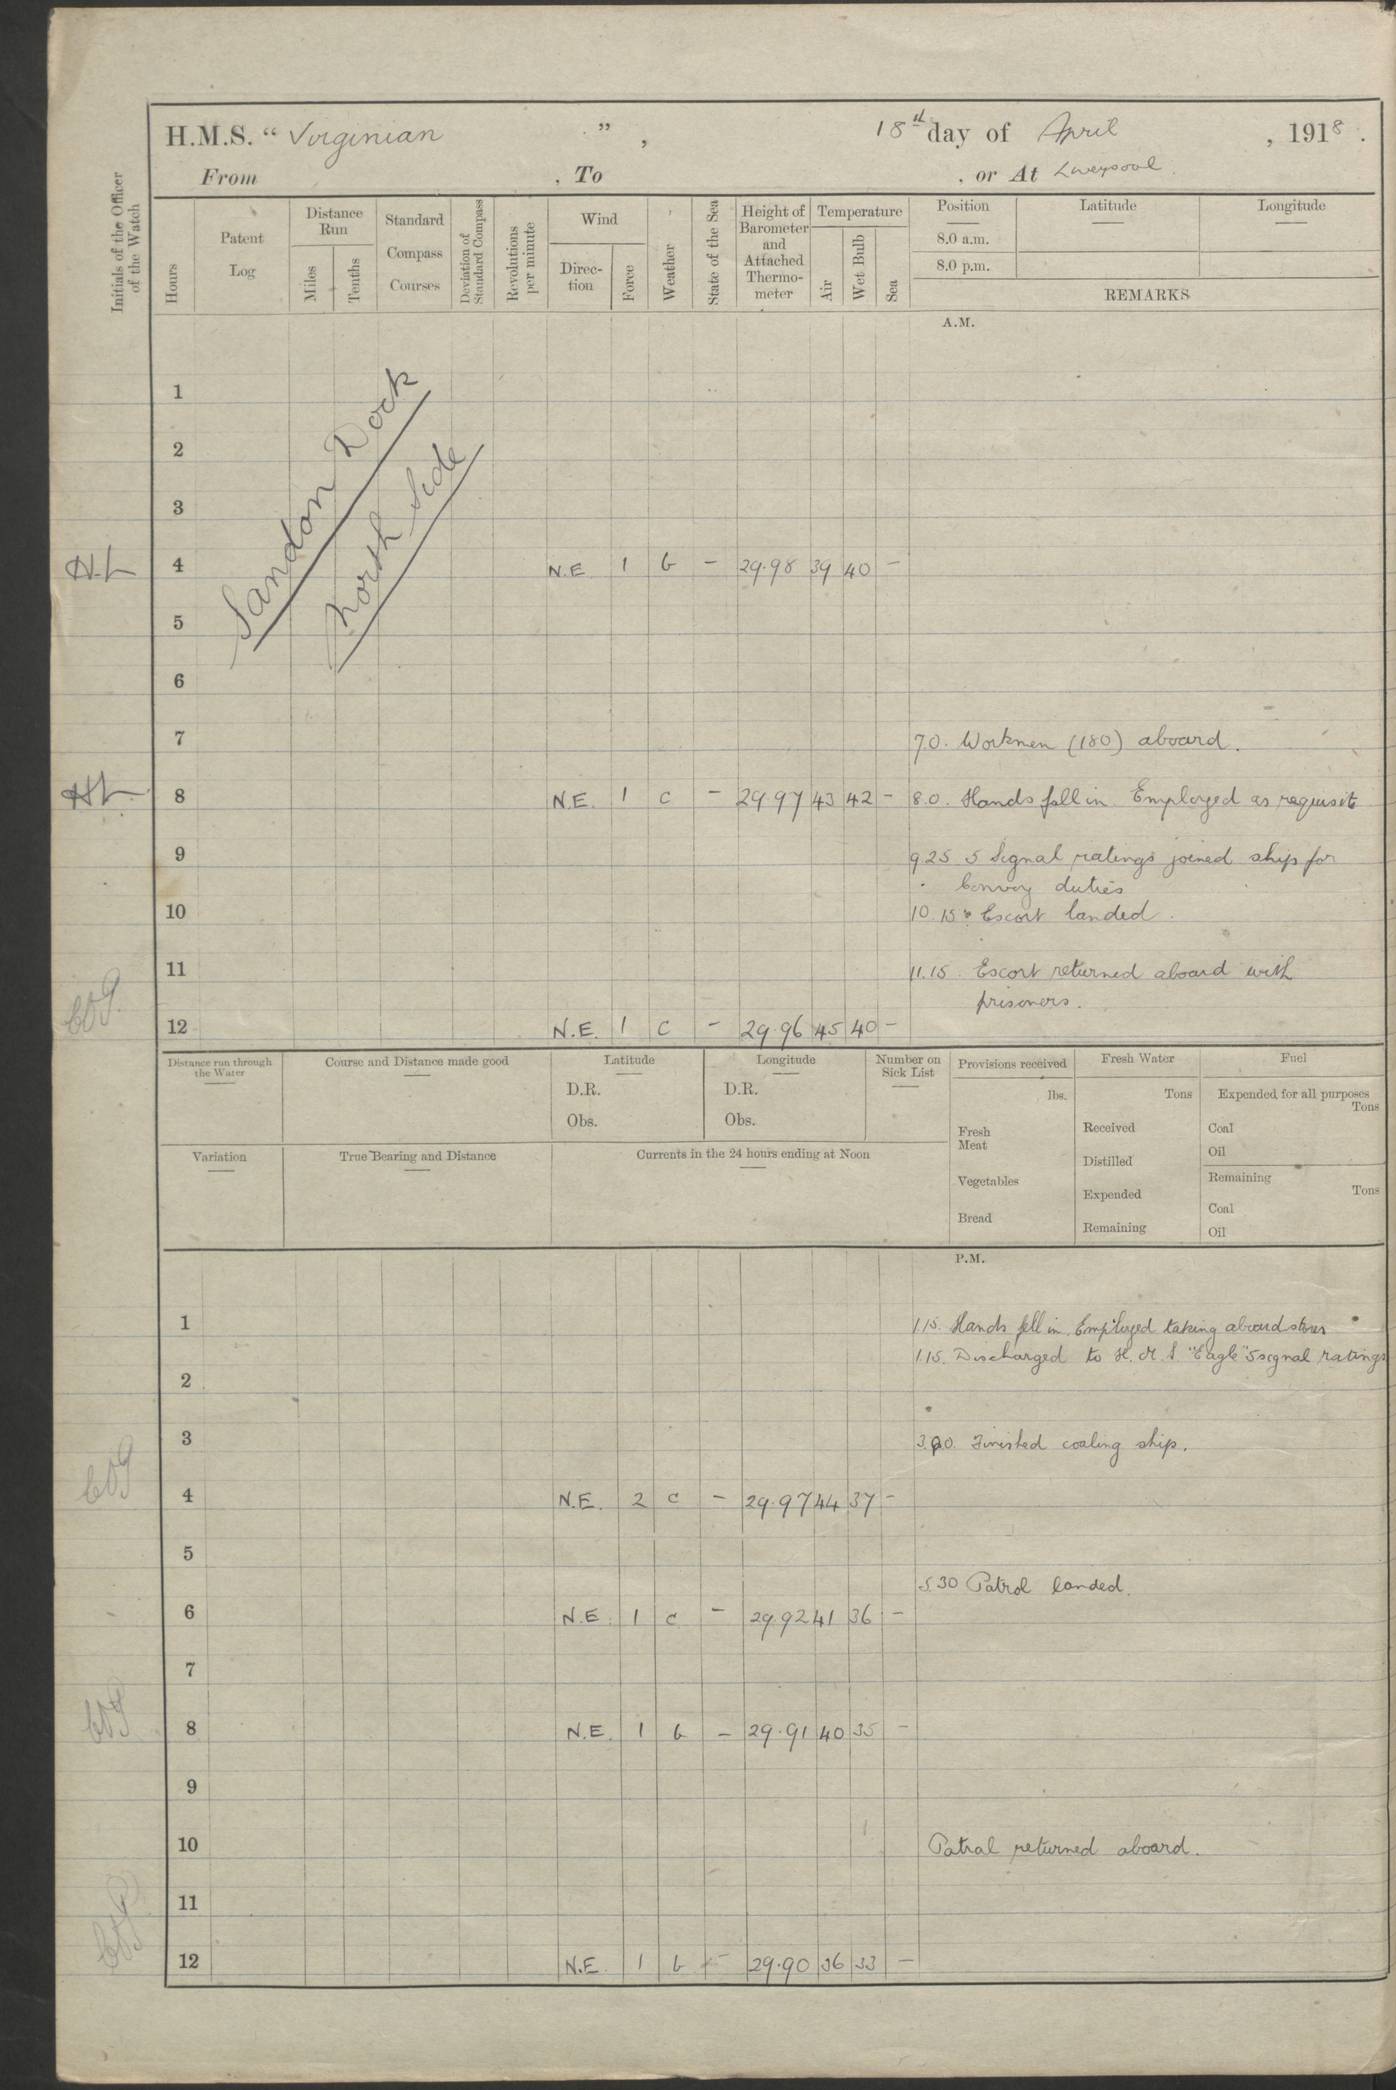 H.M.S. “ Virginian ” , 18th day of April , 1918 .
From , To , or At Liverpool
Initials of the Officer of the Watch
Hours
Patent Log
Distance Run
Miles
Tenths
Standard Compass Courses
Deviation of Standard Compass
Revolutions per minute
Wind
Direc-tion
Force
Weather
State of the Sea
Height of Barometer and Attached Thermo-meter
Temperature
Air
Wet Bulb
Sea
Position Latitude Longitude
8.0 a.m.
8.0 p.m.
REMARKS
A.M.
Sandon Dock
North Side
1
2
3
H.L 4 N.E 1 b – 29.98 39 40 –
5
6
7 7.0. Workmen (180) aboard.
HL 8 N.E. 1 c – 29.97 43 42 – 8.0. Hands fell in Employed as requisite
9 9.25 5 Signal ratings joined ship for
Convoy duties
10 10.15 Escort landed.
11 11.15 Escort returned aboard with
prisoners.
12 N.E. 1 c – 29.96 45 40 –
Distance run through the Water
Course and Distance made good
Latitude
D.R.
Obs.
Longitude
D.R.
Obs.
Number on Sick List
Provisions received
lbs.
Fresh Meat
Vegetables
Bread
Fresh Water
Tons
Received
Distilled
Expended
Remaining
Fuel
Expended for all purposes
Tons
Coal
Oil
Remaining
Tons
Coal
Oil
Variation
True Bearing and Distance
Currents in the 24 hours ending at Noon
P.M.
1 1.15. Hands fell in. Employed taking aboard stores
1.15. Discharged to H.M.S. "Eagle" 5 signal ratings
2
3 3.20. Finished coaling ship.
4 N.E. 2 c – 29.97 44 37 –
5
5.30 Patrol landed.
6 N.E. 1 c – 29.92 41 36 –
7
8 N.E. 1 b – 29.91 40 35 –
9
10 Patrol returned aboard.
11
12 N.E. 1 b – 29.90 36 33 –